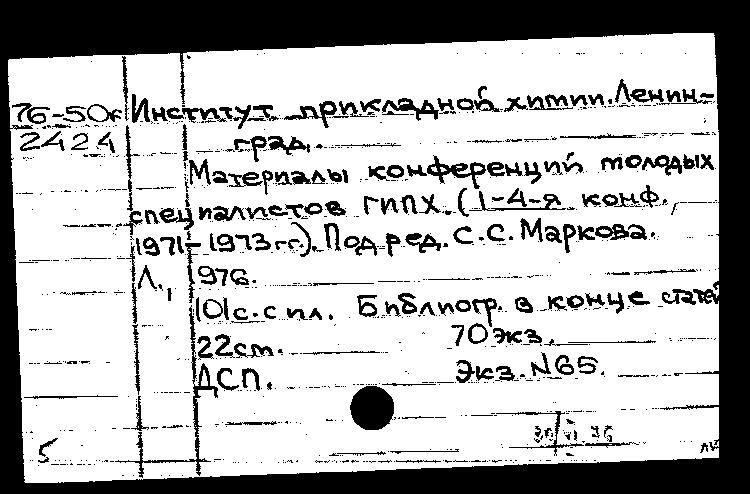 76-50к Институт прикладной химии. Ленин-
2424 град.
Материалы конференций молодых
специалистов ГИПХ. (1-4-я конф.,
1971-1973 гг.). Под ред. С.С. Маркова.
Л., 1976.
101 с. с ил. Библиогр. в конце статей
22 см. 70 экз.
ДСП. Экз. N65.
5